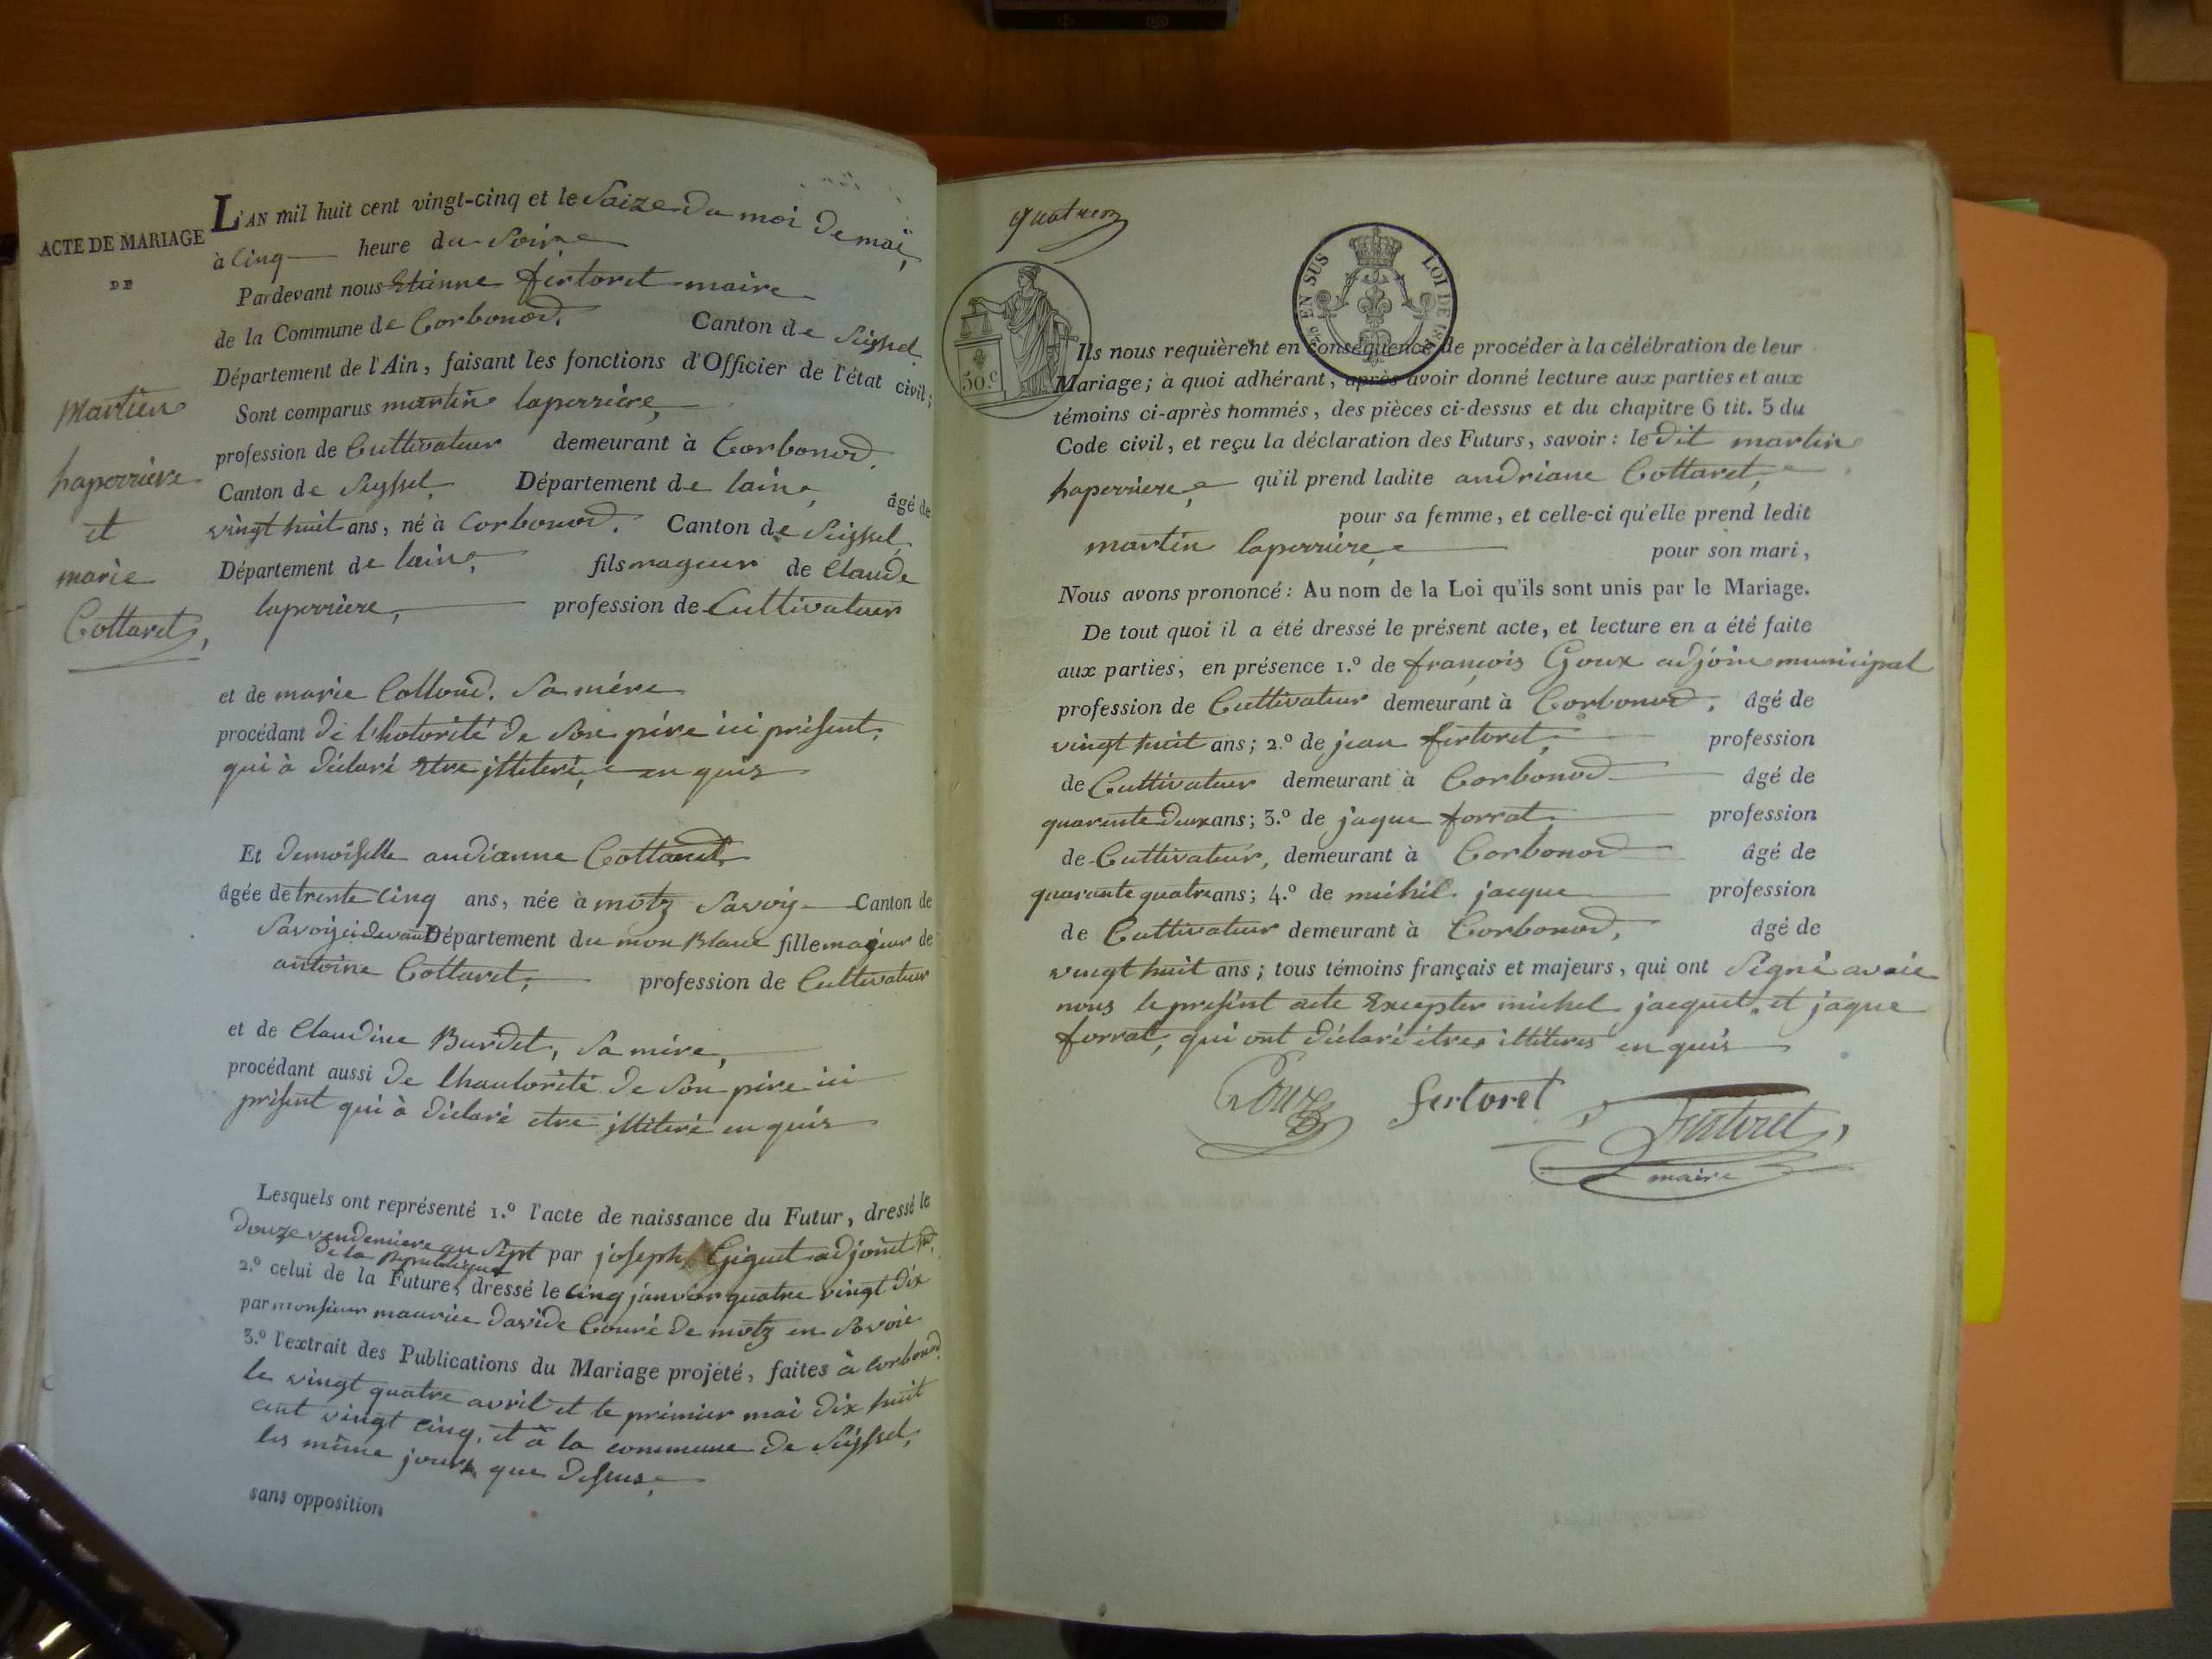 ACTE DE MARIAGE
DE
martien
laperriere
et
marie
Cottaret,
L'AN mil huit cent vingt-cinq et le saize du moi de mai,
à cinq heure du soire
Pardevant nous Etienne fertoret maire
de la Commune de Corbonod. Canton de Seissel
Département de l'Ain, faisant les fonctions d'Officier de l'état civil;
Sont comparus martin laperriere,
profession de Cultivateur demeurant à Corbonod.
Canton de Seyssel, Département de lain, âgé de
vingt huit ans, né à Corbonod. Canton de Seissel
Département de lain, fils mageur de Claude
laperriere, profession de Cultivateur
et de marie Colloud. sa mére
procédant de l'hotorité de son pére ici présent,
qui à déclaré etre illiteré, en quis
Et demoiselle andianne Cottaret
âgée de trente cinq ans, née à motz Savoy Canton de
Savoy cidevant Département du mon Blanc fille mageur de
antoine Cottaret, profession de Cultivateur
et de Claudine Burdet, sa mére,
procédant aussi de lhautorité de son pére ici
présent qui à déclaré etre illiteré en quis
Lesquels ont représenté 1.º l'acte de naissance du Futur, dressé le
douze vendemiere an sept par joseph Giguet adjoint
de la Republique
2.º celui de la Future, dressé le cinq janvier quatre vingt dix
par monsieur maurice davide Couré de motz en Savoie
3.º l'extrait des Publications du Mariage projeté, faites à Corbonod.
le vingt quatre avril et le primier mai dix huit
cent vingt cinq, et à la commune de Seissel,
les même jours que dessus,
sans opposition
50.c
5/5 EN SUS LOI DE 18
Ils nous requièrent en conséquence de procéder à la célébration de leur
Mariage; à quoi adhérant, après avoir donné lecture aux parties et aux
témoins ci-après nommés, des pièces ci-dessus et du chapitre 6 tit. 5 du
Code civil, et reçu la déclaration des Futurs, savoir: le dit martin
laperriere, qu'il prend ladite andriane Cottaret,
pour sa femme, et celle-ci qu'elle prend ledit
martin laperriere, pour son mari,
Nous avons prononcé: Au nom de la Loi qu'ils sont unis par le Mariage.
De tout quoi il a été dressé le présent acte, et lecture en a été faite
aux parties, en présence 1.º de françois Goux adjoin municipal
profession de Cultivateur demeurant à Corbonod, âgé de
vingt huit ans; 2.º de jean fertoret, profession
de Cultivateur demeurant à Corbonod âgé de
quarente deux ans; 3.º de jaque forrat profession
de Cultivateur, demeurant à Corbonod âgé de
quarante quatre ans; 4.º de michel jacque profession
de Cultivateur demeurant à Corbonod, âgé de
vingt huit ans; tous témoins français et majeurs, qui ont signé avaic
nous le présint acte Excepter michel jacquet et jaque
forrat, qui ont déclaré étres illiteres en quis
Goux fertoret Fertoret,
maire